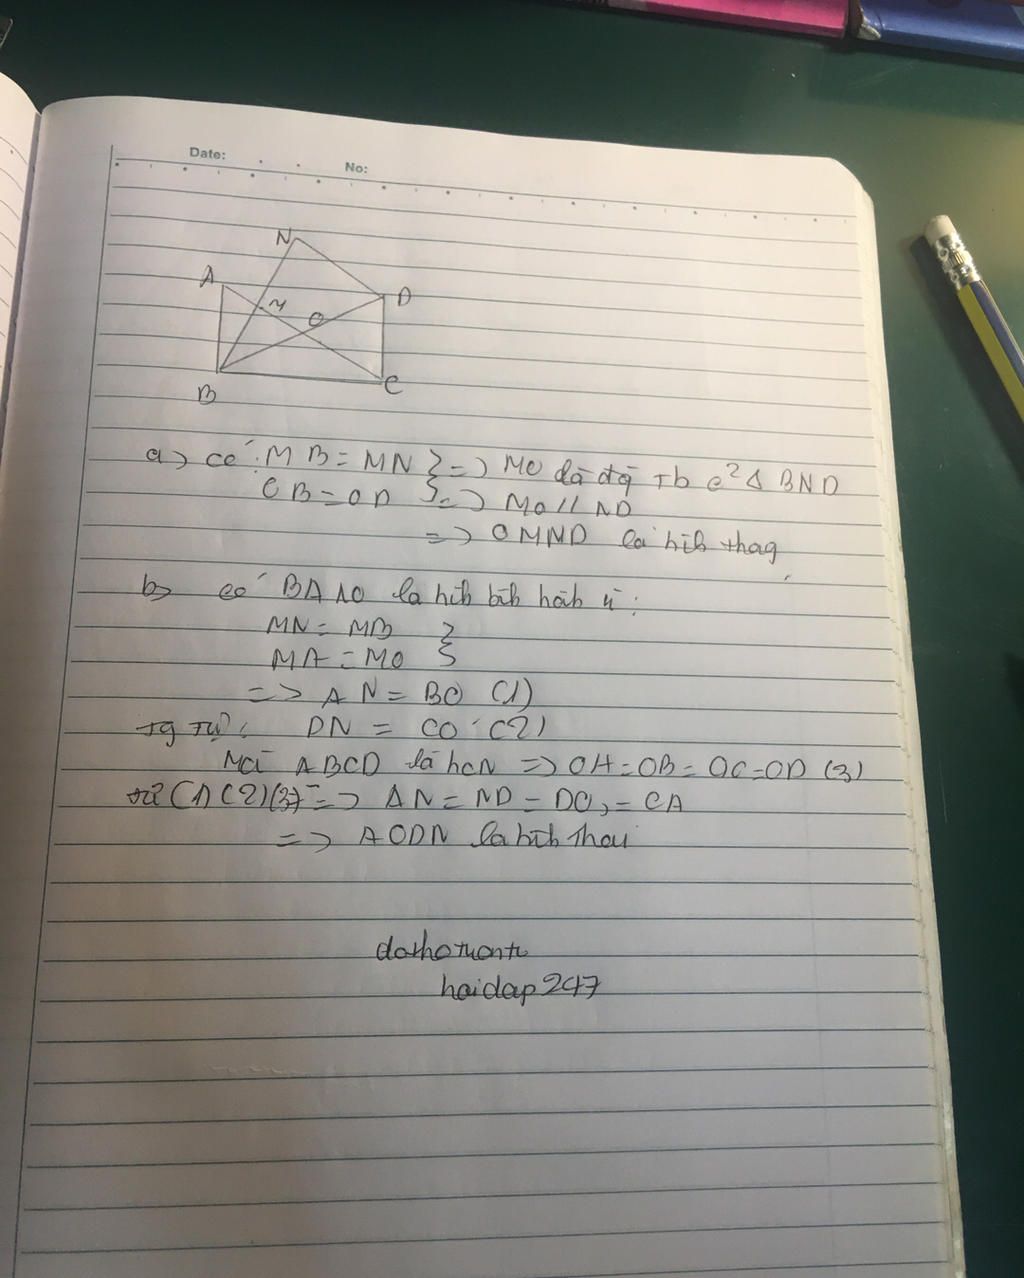 Date:
No:
N
A
M
O
D
B
C
a) có: MB = MN } => MO là đg Tb c² Δ BND
OB = OD } => MO // ND
=> OMND là hih thag
b) có BANO là hih bih hàh vì:
MN = MB }
MA = MO }
=> AN = BO (1)
Tg Tự: DN = CO (2)
Mà ABCD là hcN => OA = OB = OC = OD (3)
từ (1) (2) (3) => AN = ND = DO = OA
=> AODN là hih thoi
haidap247